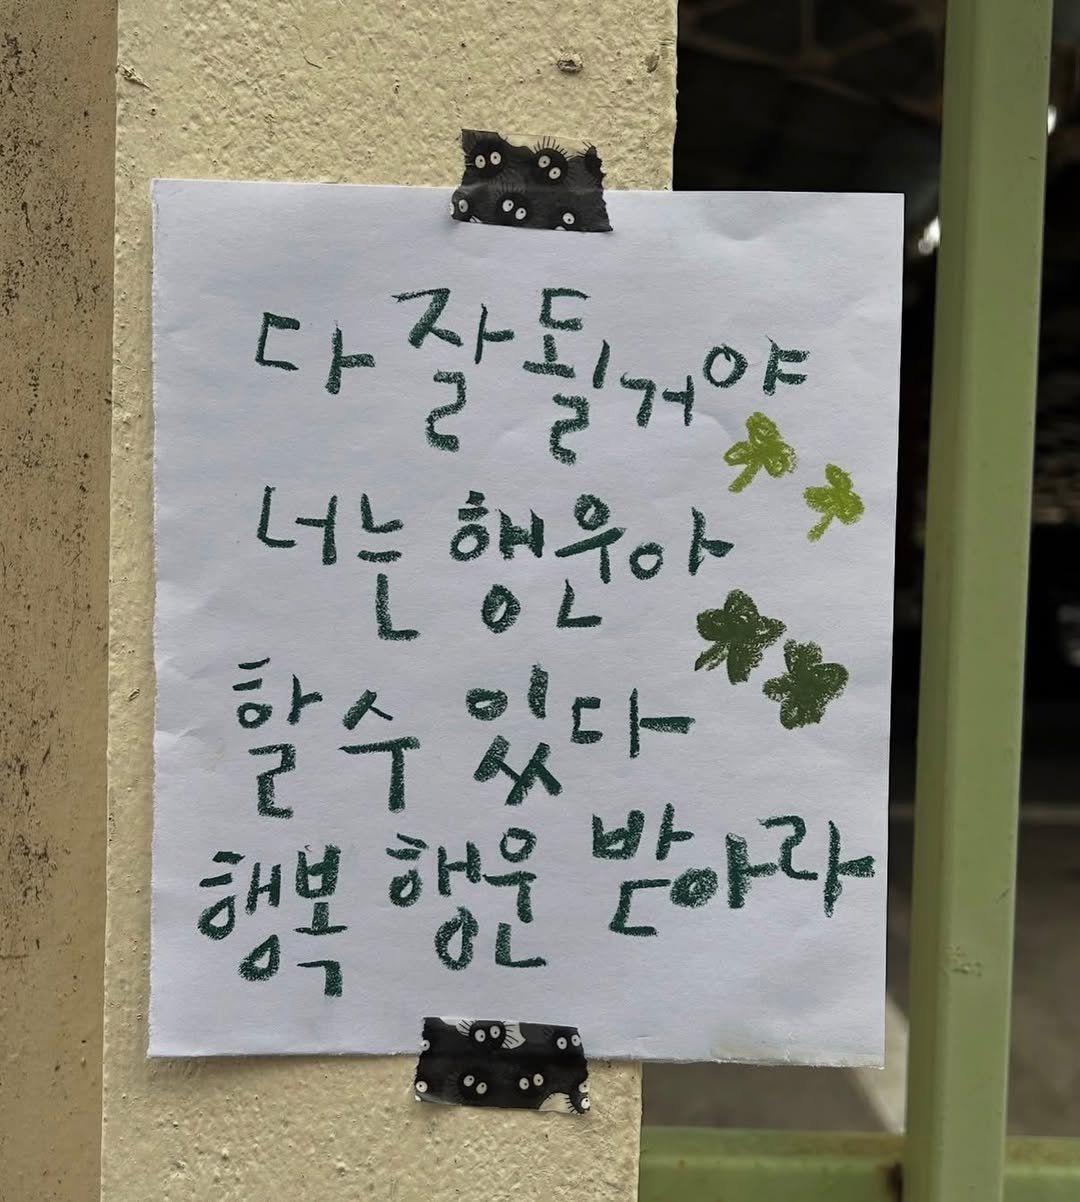 다 잘 될거야
너는 행운아
할 수 있다
행복 행운 받아라